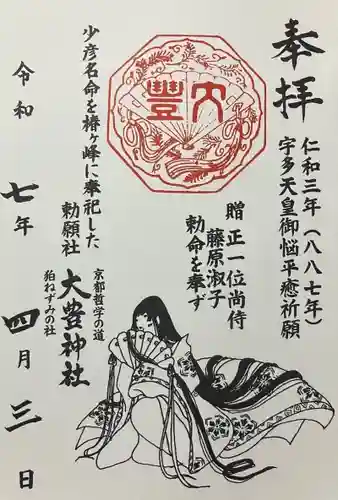 奉拝
仁和三年(八八七年)
宇多天皇御悩平癒祈願
贈 正一位尚侍
藤原淑子
勅命を奉ず
大豊
少彦名命を椿ヶ峰に奉祀した
勅願社
京都哲学の道
大豊神社
狛ねずみの社
令和七年四月三日